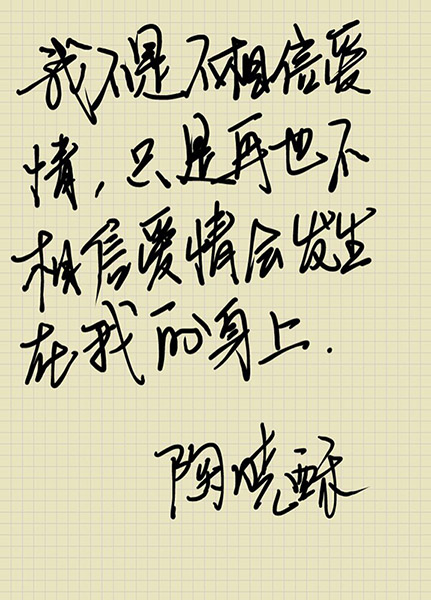 我不是不相信爱
情，只是再也不
相信爱情会发生
在我的身上．
陶晓酥